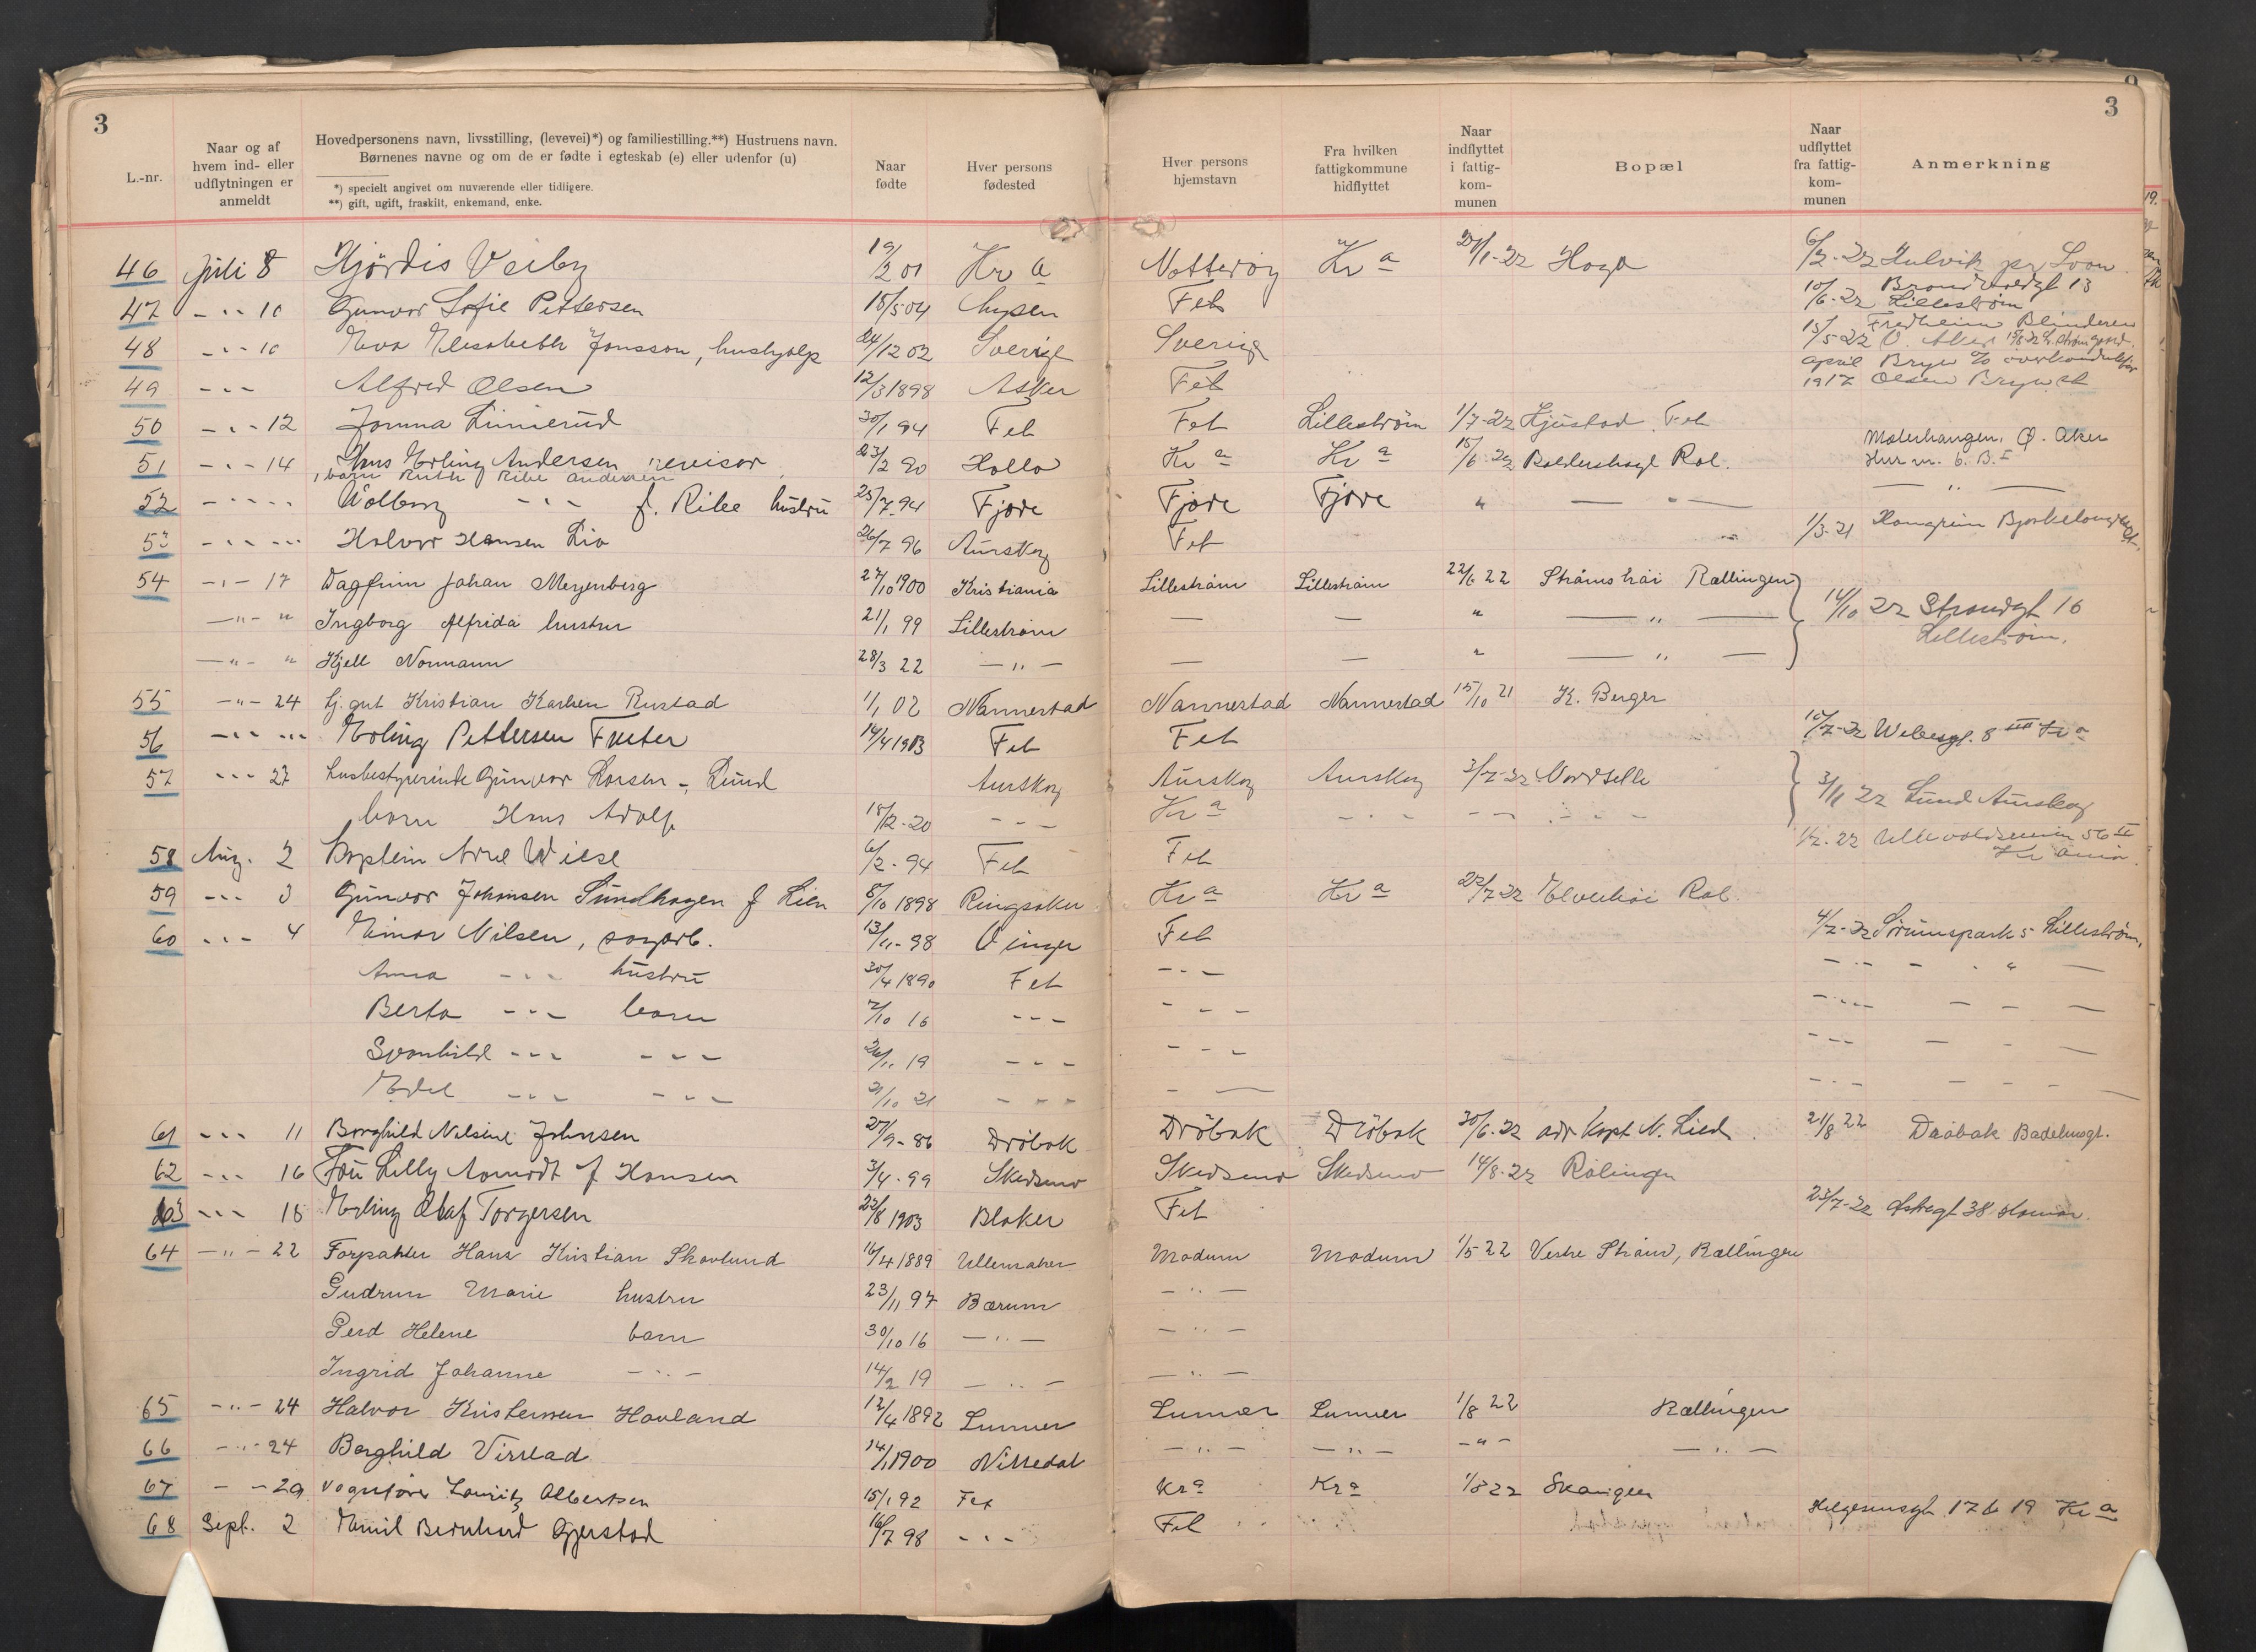 3
L.-nr.
Naar og af hvem ind- eller udflytningen er anmeldt
Hovedpersonens navn, livsstilling, (levevei)*) og familiestilling.**) Hustruens navn.
Børnenes navne og om de er fødte i egteskab (e) eller udenfor (u)
*) specielt angivet om nuværende eller tidligere.
**) gift, ugift, fraskilt, enkemand, enke.
Naar fødte
Hver persons fødested
Hver persons hjemstavn
Fra hvilken fattigkommune hidflyttet
Naar indflyttet i fattig-kom-munen
Bopæl
Naar udflyttet fra fattig-kom-munen
Anmerkning
3
46 Juli 8 Hjørdis Veiby 19/2 01 Kr a Nøtterøy Kr a 27/1-22 Haga 6/2-22 Hulvik pr,
47 - " - 10 Gunvor Sofie Pettersen 18/5 04 Fet 10/6-22 13 Lillestrøm
48 - " - 10 Eva Elisabeth Jonsson, hushjælp 24/12 02 Sverige Sverige 15/5-22 Fredheim Blinderen Ø. Aker
49 - " - Alfred Olsen 12/3 1898 Asker Fet april 1917 Bryn % Olsen Bryn st
50 - " - 12 Jonna Linnerud 30/1 94 Fet Fet Lillestrøm 1/7-22 Fet
51 - " - 14 Hans Erling Andersen revisor 23/2 90 Holla Kr a Kr a 15/6-22 Ral. Ø. Aker
barn Ruth Ribe Andersen
52 - " - " Valborg - " - f. Ribe hustru 25/7 94 Fjære Fjære Fjære " - " - - " -
53 - " - " Halvor Hansen Lia 26/7 96 Aurskog Fet 1/3-21
54 - " - 17 Dagfinn Johan Meyenberg 27/10 1900 Kristiania Lillestrøm Lillestrøm 22/6 22 Rællingen 14/10 22 Strandgt 16 Lillestrøm.
- " - " Ingborg Alfrida hustru 21/1 99 Lillestrøm — — " — " —
- " - " Kjell Normann 28/3 22 - " - — — " — " —
55 - " - 24 Kristian Karlsen Rustad 1/1 02 Nannestad Nannestad Nannestad 15/10 21 K. Berger
56 - " - " Erling Pettersen 14/4 1903 Fet Fet 10/7-22 8 III Kr a
57 - " - 27 husbestyrerinde Gunvor Larsen - Lund Aurskog Aurskog Aurskog 3/7-22 Nordsetle 3/11 22 Lund Aurskog
barn Hans Adolf 18/12-20 - " - Kr a - " - - " - - " -
58 Aug. 2 Kaptein Arne Wiese 6/2-94 Fet Fet 1/2-22 56 II Kr ania.
59 - " - 3 Gunvor Johansen Sundhagen f Lien 8/10 1898 Ringsaker Kr a Kr a 22/7-22 Ral.
60 - " - 4 Einar Nilsen, sagarb. 13/11-98 Vinger Fet 4/2-22 Sørumspark 5 Lillestrøm,
Anna - " - hustru 30/4 1890 Fet - " - - " -
Berta - " - barn 7/10 16 - " - - " - - " -
Svanhild - " - - " - 26/11 19 - " - - " - - " -
Edel - " - - " - 21/10 21 - " - - " - - " -
61 - " - 11 Borghild Nilsine Johnsen 27/9-86 Drøbak Drøbak Drøbak 30/6-22 adr Kapt. N. Lied 21/8 22 Drøbak Badehusgt.
62 - " - 16 Fru Lilly Aamodt f Hansen 3/4-99 Skedsmo Skedsmo Skedsmo 14/8-22 Rælingen
63 - " - 18 Erling Olaf Torgersen 22/8 1903 Blaker Fet 23/7-22 38 Hamar.
64 - " - 22 Forpakter Hans Kristian Skovlund 16/4 1889 Ullensaker Modum Modum 1/5 22 Vestre Strøm, Rællingen
Gudrun Marie hustru 23/11 97 Bærum - " -
Gerd Helene barn 30/10 16 - " - - " -
Ingrid Johanne - " - 14/2 19 - " - - " -
65 - " - 24 Halvor Kristensen Hovland 12/4 1892 Lunner Lunner Lunner 1/8 22 Rællingen
66 - " - 24 Borghild Virstad 14/1 1900 Nittedal - " - - " - - " - - " -
67 - - 29 Vognfører Lauritz Albertsen 15/1 92 Fet Kr a Kr a 1/8 22
68 Sept. 2 Emil Bernhard Gjerstad 16/7 98 - " - Fet Helgesensgt. 17 b 19 Kr a